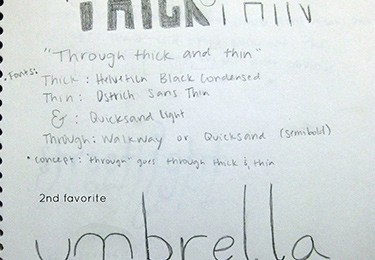 THICK THIN
"Through thick and thin"
• Fonts:
Thick: Helvetica Black Condensed
Thin: Ostrich Sans Thin
&: Quicksand Light
Through: Walkway or Quicksand (semibold)
• concept: "through" goes through thick & thin
2nd favorite
umbrella